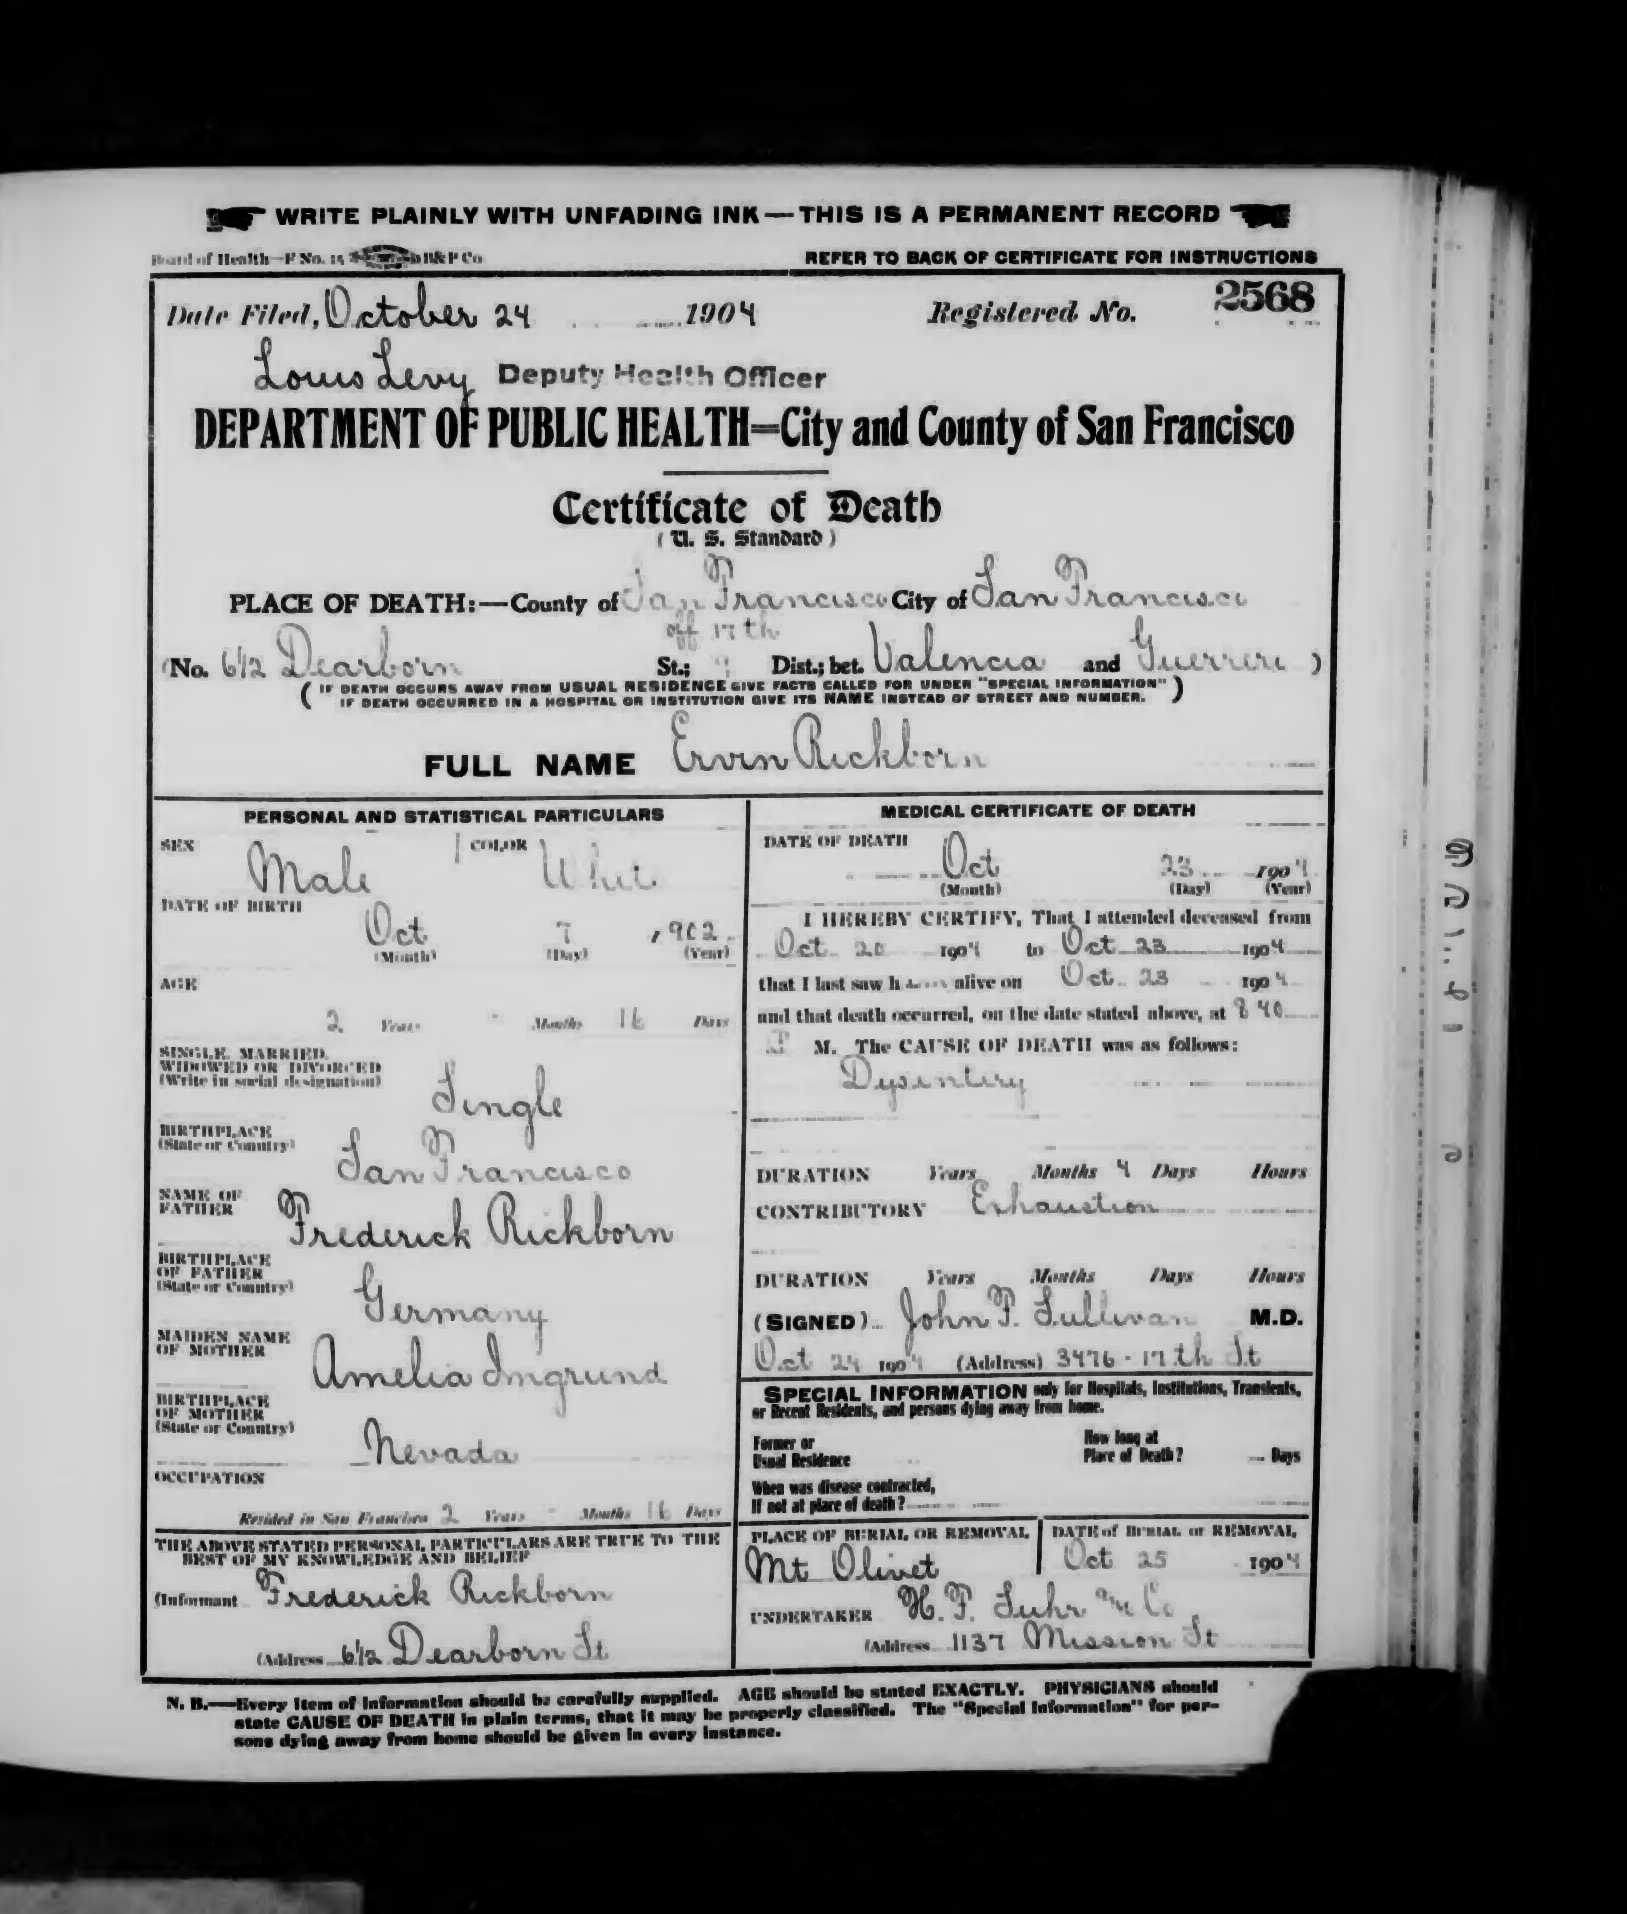 WRITE PLAINLY WITH UNFADING INK — THIS IS A PERMANENT RECORD
Board of Health—F No. 15 B&P Co
REFER TO BACK OF CERTIFICATE FOR INSTRUCTIONS
Date Filed, October 24 1904 Registered No. 2568
Louis Levy Deputy Health Officer
DEPARTMENT OF PUBLIC HEALTH=City and County of San Francisco
Certificate of Death
( U. S. Standard )
PLACE OF DEATH:—County of San Francisco City of San Francisco
off 17th
(No. 6 1/2 Dearborn St.; Dist.; bet. Valencia and Guerrero )
( IF DEATH OCCURS AWAY FROM USUAL RESIDENCE GIVE FACTS CALLED FOR UNDER "SPECIAL INFORMATION" )
IF DEATH OCCURRED IN A HOSPITAL OR INSTITUTION GIVE ITS NAME INSTEAD OF STREET AND NUMBER.
FULL NAME Ervin Rickborn
PERSONAL AND STATISTICAL PARTICULARS
SEX Male COLOR White
DATE OF BIRTH
Oct 7 1902
(Month) (Day) (Year)
AGE
2 Years - Months 16 Days
SINGLE, MARRIED,
WIDOWED OR DIVORCED
(Write in social designation)
Single
BIRTHPLACE
(State or Country)
San Francisco
NAME OF
FATHER
Frederick Rickborn
BIRTHPLACE
OF FATHER
(State or Country)
Germany
MAIDEN NAME
OF MOTHER
Amelia Imgrund
BIRTHPLACE
OF MOTHER
(State or Country)
Nevada
OCCUPATION
Resided in San Francisco 2 Years - Months 16 Days
THE ABOVE STATED PERSONAL PARTICULARS ARE TRUE TO THE
BEST OF MY KNOWLEDGE AND BELIEF
(Informant Frederick Rickborn
(Address 6 1/2 Dearborn St
MEDICAL CERTIFICATE OF DEATH
DATE OF DEATH
Oct 23 1904
(Month) (Day) (Year)
I HEREBY CERTIFY, That I attended deceased from
Oct 20 1904 to Oct 23 1904
that I last saw h alive on Oct 23 1904
and that death occurred, on the date stated above, at 8 40
P M. The CAUSE OF DEATH was as follows:
Dysentery
DURATION Years Months 4 Days Hours
CONTRIBUTORY Exhaustion
DURATION Years Months Days Hours
(SIGNED) John F. Sullivan M.D.
Oct 24 1904 (Address) 3476 - 17th St
SPECIAL INFORMATION only for Hospitals, Institutions, Transients,
or Recent Residents, and persons dying away from home.
Former or
Usual Residence
How long at
Place of Death? Days
When was disease contracted,
If not at place of death?
PLACE OF BURIAL OR REMOVAL
Mt Olivet
DATE of BURIAL or REMOVAL
Oct 25 1904
UNDERTAKER H. F. Suhr & Co
(Address 1137 Mission St
N. B.—Every item of information should be carefully supplied. AGE should be stated EXACTLY. PHYSICIANS should
state CAUSE OF DEATH in plain terms, that it may be properly classified. The "Special Information" for per-
sons dying away from home should be given in every instance.